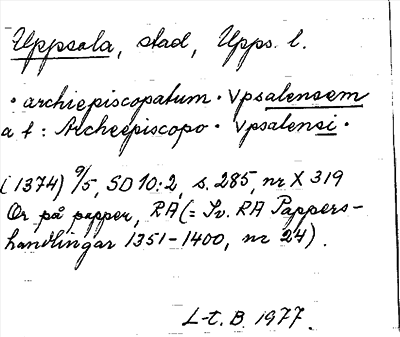 Uppsala, stad, Upps. l.
· archiepiscopatum · Vpsalensem
a t : Archeepiscopo · Vpsalensi ·
(1374) 9/5, SD 10:2, s. 285, nr X 319
Or på papper, RA (= Sv. RA Pappers-
handlingar 1351-1400, nr 24).
L-t. B. 1977.